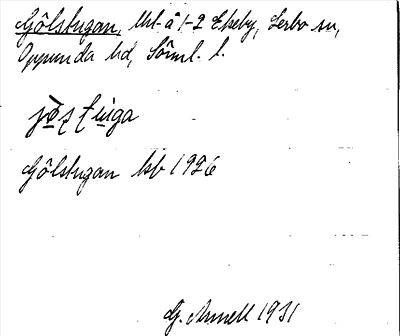 Gölstugan, Utt. å 1-2 Ekeby, Lerbo sn,
Oppunda hd, Sörml. l.
Gölstugan hb 1926
G. Annell 1931